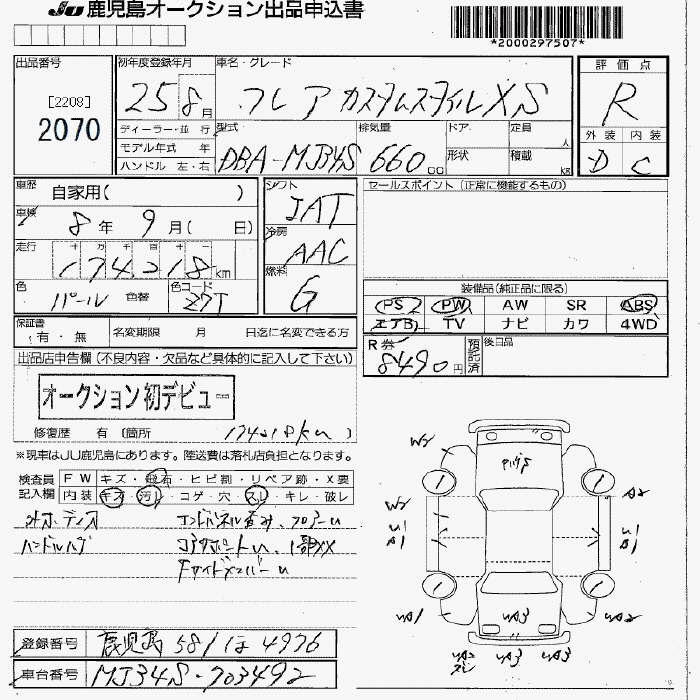 JU 鹿児島オークション出品申込書
*2000297507*
出品番号
[2208]
2070
初年度登録年月
25 8月
車名・グレード
フレア カスタムスタイル XS
評価点
R
外装 内装
D C
ディーラー・並行
モデル年式 年
ハンドル 左・右
型式
DBA-MJ34S
排気量
660 cc
ドア
形状
定員 人
積載 kg
車歴
自家用( )
車検
8年 9月( 日)
走行
十 万 千 百 十
174218km
色
パール 色替
色コード
Z7T
シフト
IAT
冷房
AAC
燃料
G
セールスポイント (正常に機能するもの)
装備品(純正品に限る)
PS PW AW SR ABS
エアB TV ナビ カワ 4WD
保証書
有・無
名変期限 月 日迄に名変できる方
R券
8490円
預託済
後日品
出品店申告欄(不良内容・欠品など具体的に記入して下さい)
オークション初デビュー
修復歴 有 (箇所 174218km )
※現車はJU鹿児島にあります。陸送費は落札店負担となります。
検査員記入欄
FW キズ・飛石・ヒビ割・リペア跡・X要
内装 キズ・汚レ・コゲ・穴・スレ・キレ・破レ
エンドパネル歪み、フロアーU
コアサポートU、1部XX
FサイドメンバーU
W2
W2
U1
B1
UA1
A2
U1
B1
UA2
UA3
UA2
UA3
UA3
登録番号
鹿児島 581 ほ 4976
車台番号
MJ34S-703492